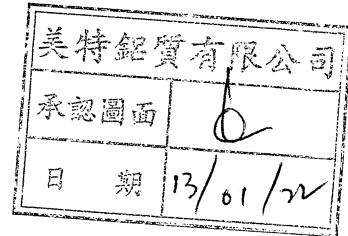 美特鋁質有限公司
承認圖面
日期 13/01/22